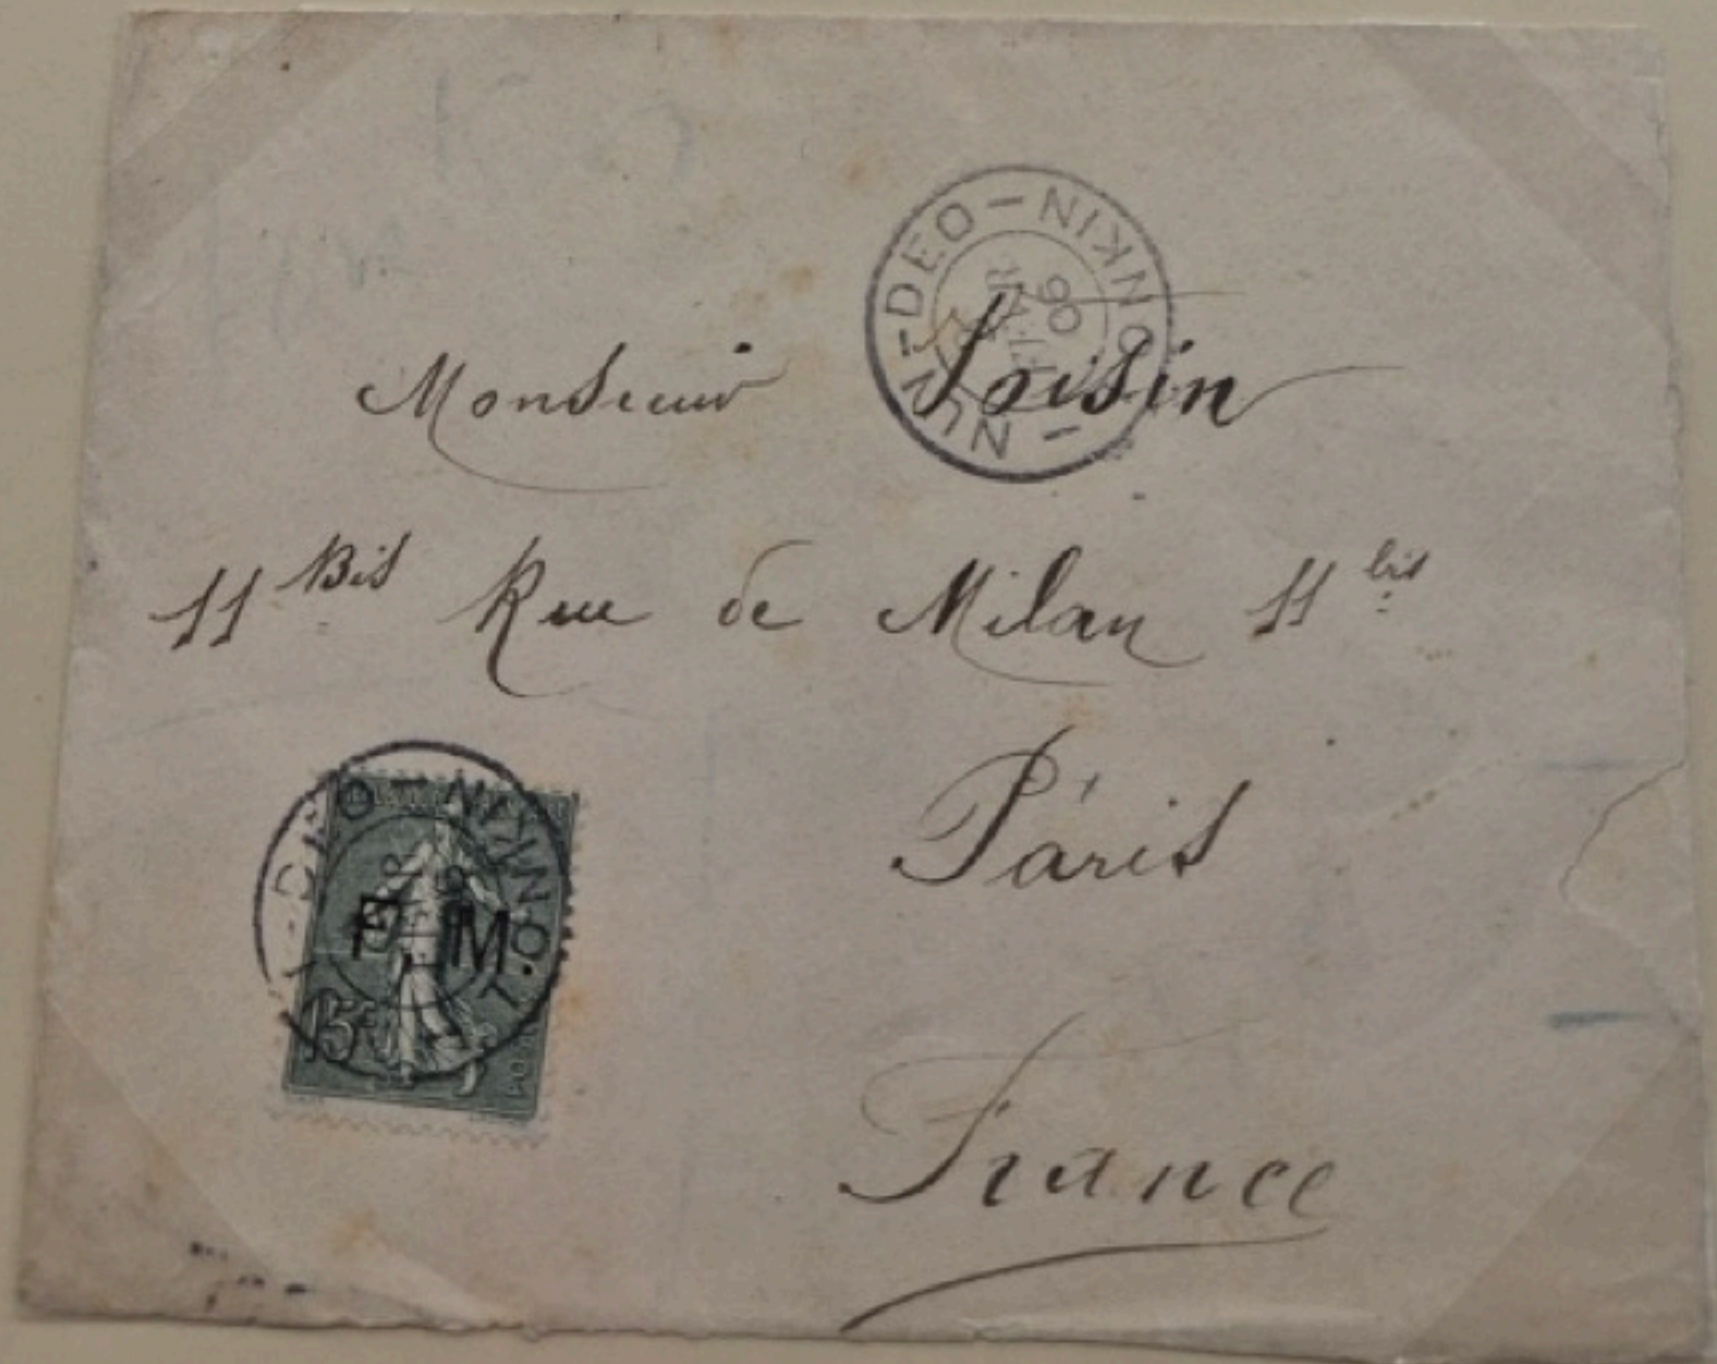 NUI-DEO - TONKIN
06
Monsieur Loisin
11 Bis Rue de Milan 11 bis
Paris
France
TONKIN
F. M.
15c